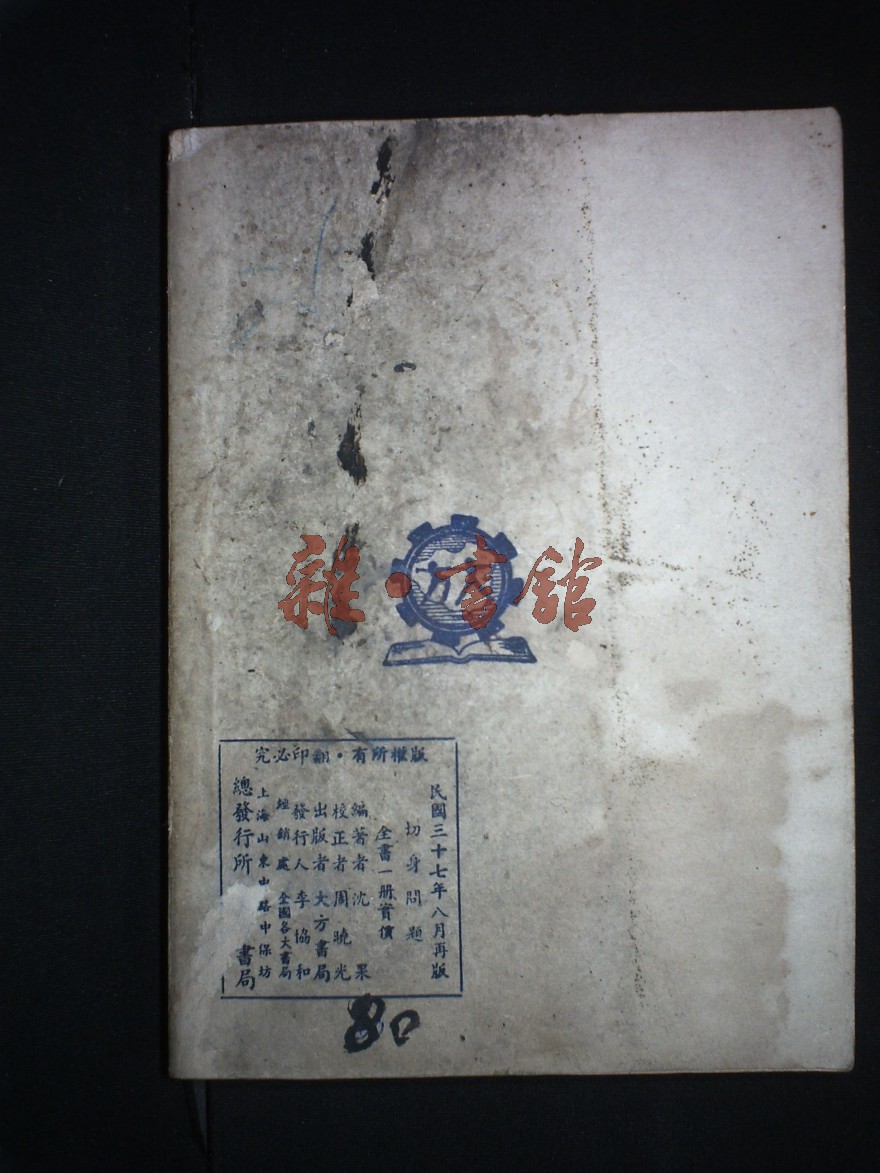 雜・書館
版權所有・翻印必究
民國三十七年八月再版
切身問題
全書一册實價
編著者 沈 果
校正者 周曉光
出版者 大方書局
發行人 李協和
經銷處 全國各大書局
上海山東中路中保坊
總發行所 書局
80